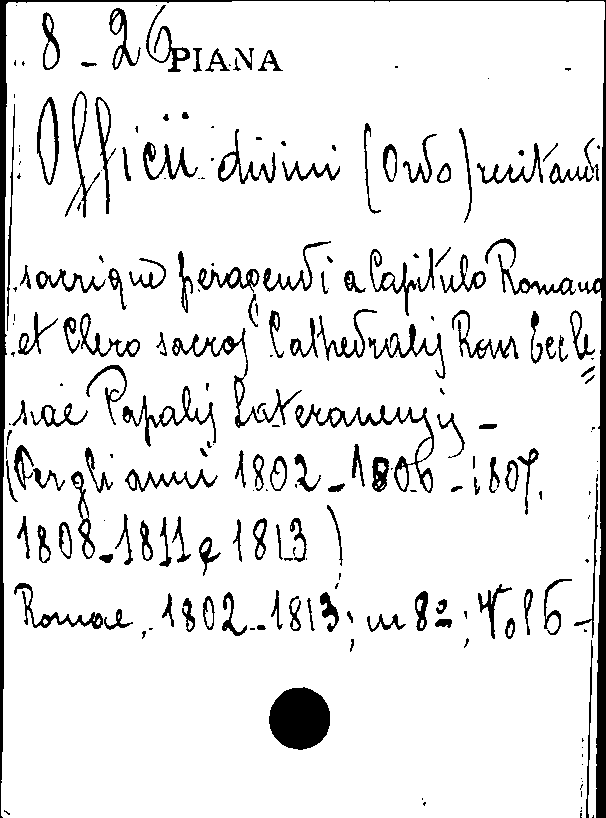 8-26 PIANA
Officii divini (Ordo) recitandi
sacrique peragendi a Capitulo Romano
et Clero sacros Cathedralis Rom Eccle=
siae Papalis Lateranensis -
(Per gli anni 1802-1806-1807.
1808-1811 e 1813)
Romae, 1802-1813; in 8º; Vol 6-